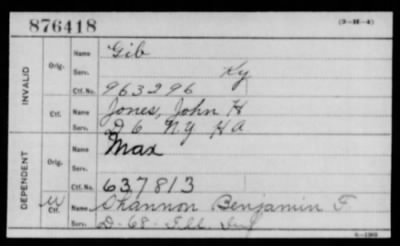 876418
(3-H-4)
INVALID
Orig.
Name Gib
Serv. Ky
Ctf. No. 963296
Ctf.
Name Jones, John H
Serv. D 6 N.Y. H A
DEPENDENT
Orig.
Name Max
Serv.
Ctf. No. 637813
Ctf.
Name Shannon Benjamin F.
Serv. D-68-Ill. Inf